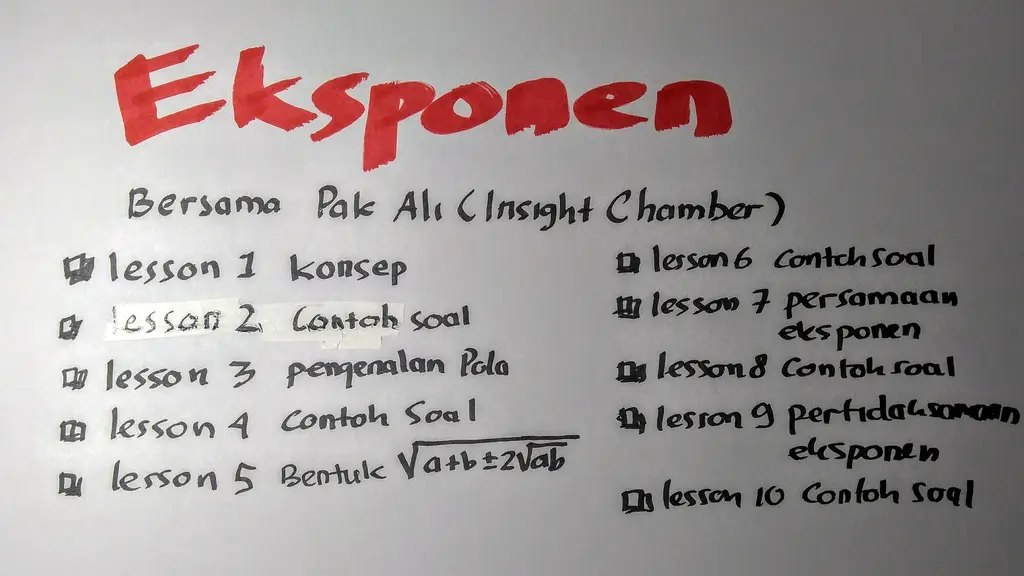 Eksponen
Bersama Pak Ali (Insight Chamber)
lesson 1 konsep
lesson 2 Contoh soal
lesson 3 pengenalan Pola
lesson 4 Contoh Soal
lesson 5 Bentuk √(a+b±2√ab)
lesson 6 Contoh soal
lesson 7 persamaan
eksponen
lesson 8 Contoh soal
lesson 9 pertidaksamaan
eksponen
lesson 10 Contoh Soal